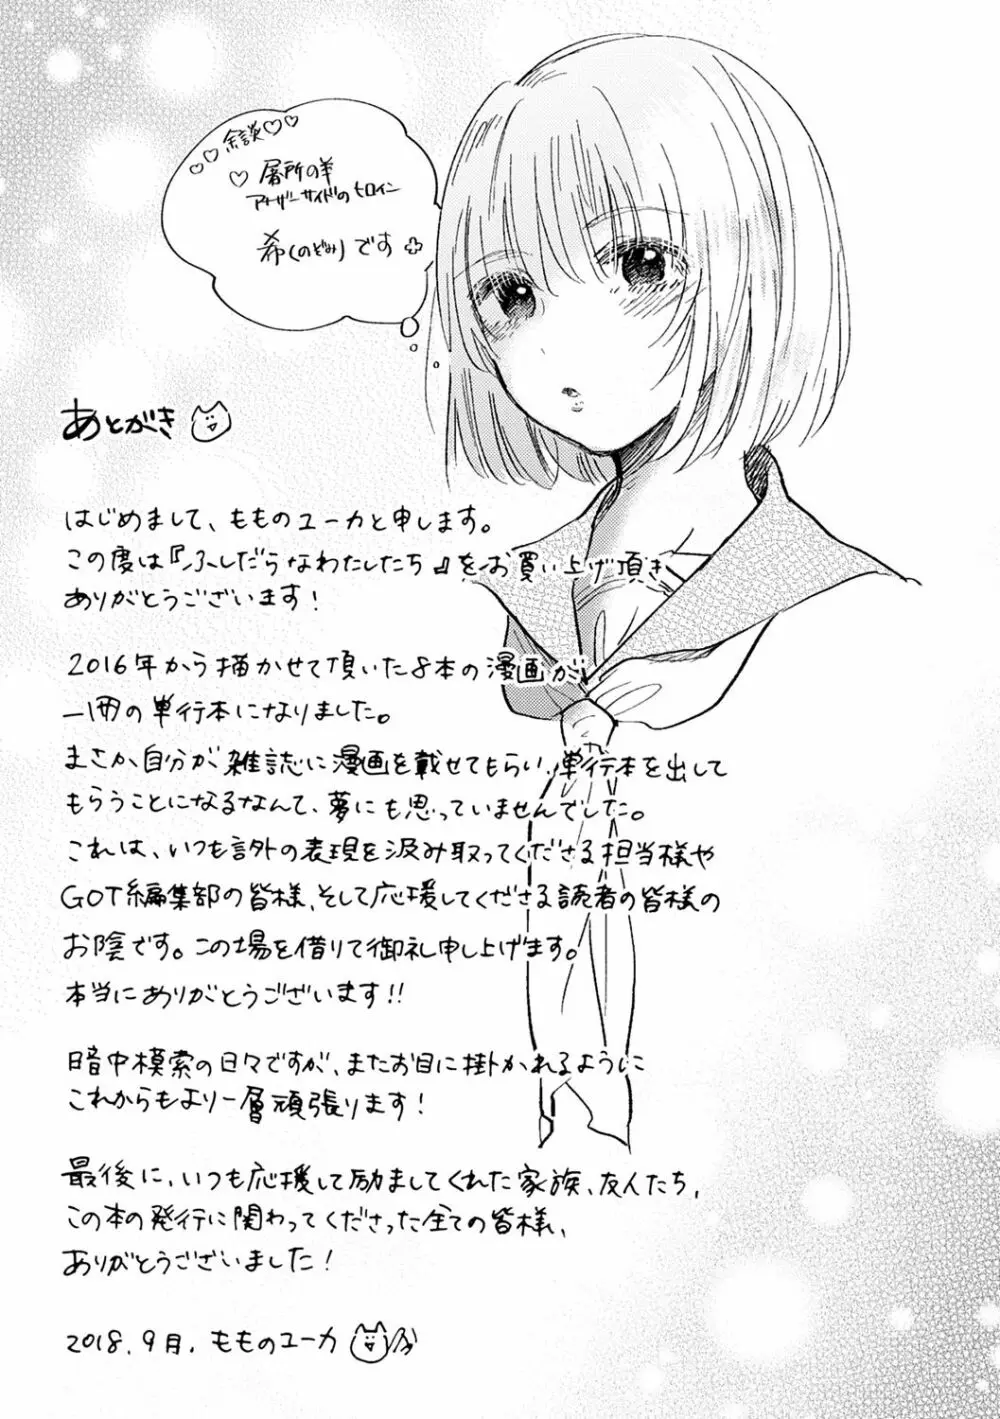 余談♡♡
♡♡
♡ 屠所の羊
アナザーサイドのヒロイン
希(のぞみ)です
あとがき
はじめまして、もものユーカと申します。
この度は『ふしだらなわたしたち』をお買い上げ頂き
ありがとうございます!
2016年から描かせて頂いた8本の漫画が
一冊の単行本になりました。
まさか自分が雑誌に漫画を載せてもらい、単行本を出して
もらうことになるなんて、夢にも思っていませんでした。
これは、いつも言外の表現を汲み取ってくださる担当様や
GOT編集部の皆様、そして応援してくださる読者の皆様の
お陰です。この場を借りて御礼申し上げます。
本当にありがとうございます!!
暗中模索の日々ですが、またお目に掛かれるように
これからもより一層頑張ります!
最後に、いつも応援して励ましてくれた家族、友人たち、
この本の発行に関わってくださった全ての皆様、
ありがとうございました!
2018.9月. もものユーカ